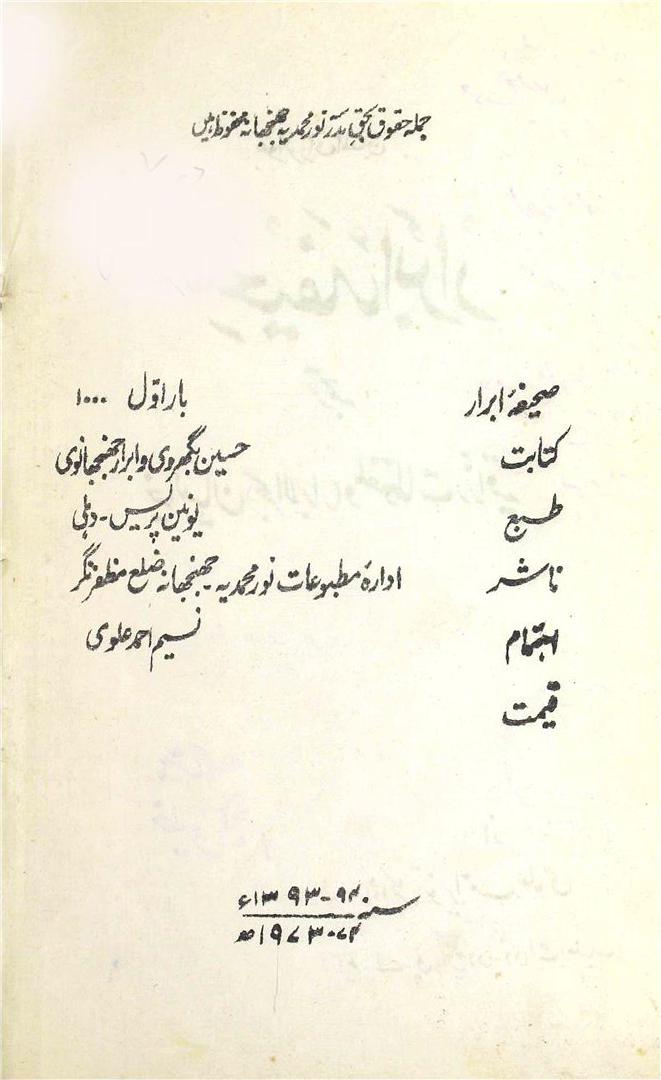 جملہ حقوق بحق مدرسہ نور محمدیہ جھنجھانہ محفوظ ہیں
صحیفۂ ابرار بار اوّل ۱۰۰۰
کتابت حسین بگھروی و ابرار جھنجھانوی
طبع یونین پریس - دہلی
ناشر ادارۂ مطبوعات نور محمدیہ جھنجھانہ ضلع مظفر نگر
اہتمام نسیم احمد علوی
قیمت
سنہ ۱۳۹۳-۹۴ء
۱۹۷۳-۷۴ھ